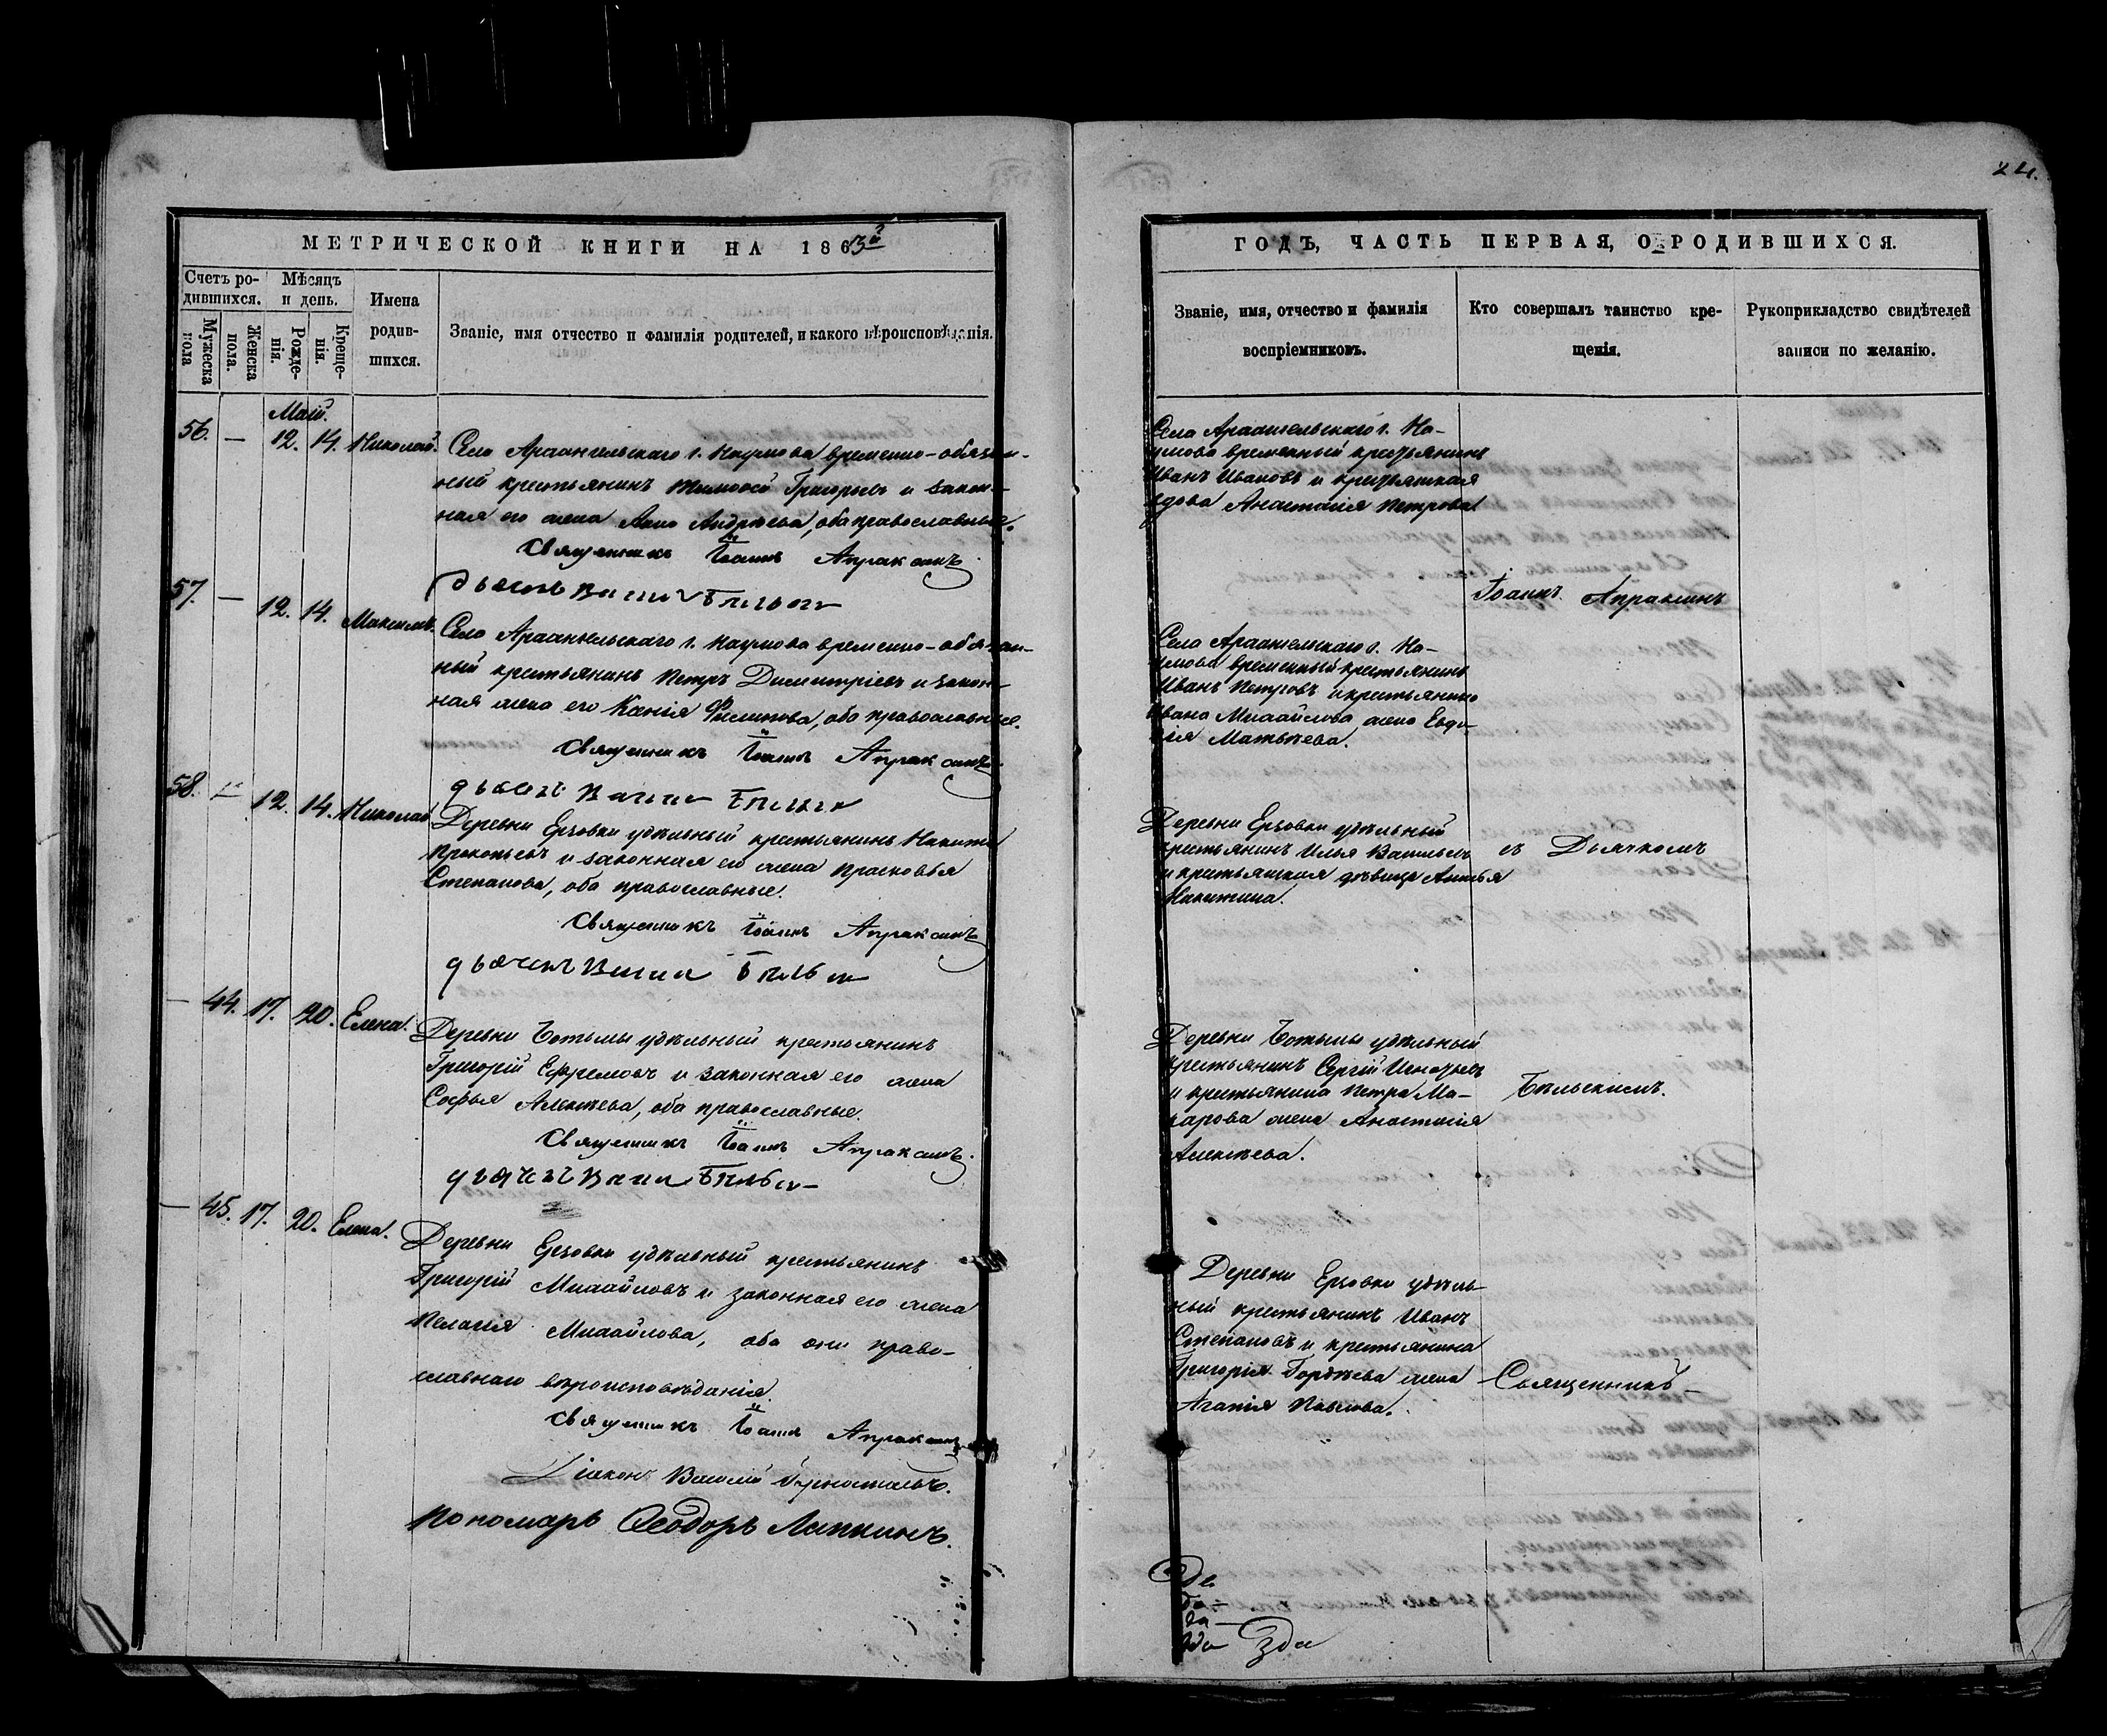 24.
МЕТРИЧЕСКОЙ КНИГИ НА 1863й
Счетъ ро-
дившихся.
Мужеска пола
Женска пола.
Мѣсяцъ
и день.
Рожде-
нія.
Креще-
нія.
Имена
родив-
шихся.
Званіе, имя отчество и фамилія родителей, и какого вѣроисповѣданія.
Май.
56. — 12. 14. Николай.
Села Архангельскаго г. Наумова временно-обязан-
ный крестьянинъ Тимоѳей Григорьевъ и закон-
ная его жена Анна Андреева, оба православные.
Священникъ Іоаннъ Апраксинъ
дьячекъ
57. — 12. 14. Максимъ.
Села Архангельскаго г. Наумова временно-обязан-
ный крестьянинъ Петръ Димитріевъ и закон-
ная жена его Филипова, оба православные.
Священникъ Іоаннъ Апраксинъ
дьячекъ
58. — 12. 14. Николай
Деревни Ерзовки удѣльный крестьянинъ Никита
Прокопьевъ и законная его жена Прасковья
Степанова, оба православные.
Священникъ Іоаннъ Апраксинъ
дьячекъ
— 44. 17. 20. Елена.
Деревни Ботьмы удѣльный крестьянинъ
Григорій Ефремовъ и законная его жена
Софья Алексѣева, оба православные.
Священникъ Іоаннъ Апраксинъ.
дьячекъ
— 45. 17. 20. Елена.
Деревни Ерзовки удѣльный крестьянинъ
Григорій Михайловъ и законная его жена
Пелагія Михайлова, оба они право-
славнаго вѣроисповѣданія.
Священникъ Іоаннъ Апраксинъ
Діаконъ Василій
Пономарь Ѳеодоръ Липкинъ.
ГОДЪ, ЧАСТЬ ПЕРВАЯ, О РОДИВШИХСЯ.
Званіе, имя, отчество и фамилія
воспріемниковъ.
Кто совершалъ таинство кре-
щенія.
Рукоприкладство свидѣтелей
записи по желанію.
Села Архангельскаго г. На-
умова временный крестьянинъ
Иванъ Ивановъ и крестьянская
вдова Анастасія Петрова
Села Архангельскаго г. На-
умова временный крестьянинъ
Иванъ Петровъ и крестьянина
Ивана Михайлова жена Евдо-
кія Матвѣева.
Деревни Ерзовки удѣльный
крестьянинъ Илья Васильевъ
и крестьянская дѣвица
Никитина.
Деревни Ботьмы удѣльный
крестьянинъ Сергій
и крестьянина Петра Ма-
карова жена Анастасія
Алексѣева.
Деревни Ерзовки удѣль-
ный крестьянинъ Иванъ
Степановъ и крестьянина
Григорія Гордѣева жена
Агапія Павлова.
Іоаннъ Апраксинъ
съ Дьячкомъ
Бѣльскимъ.
Священникъ —